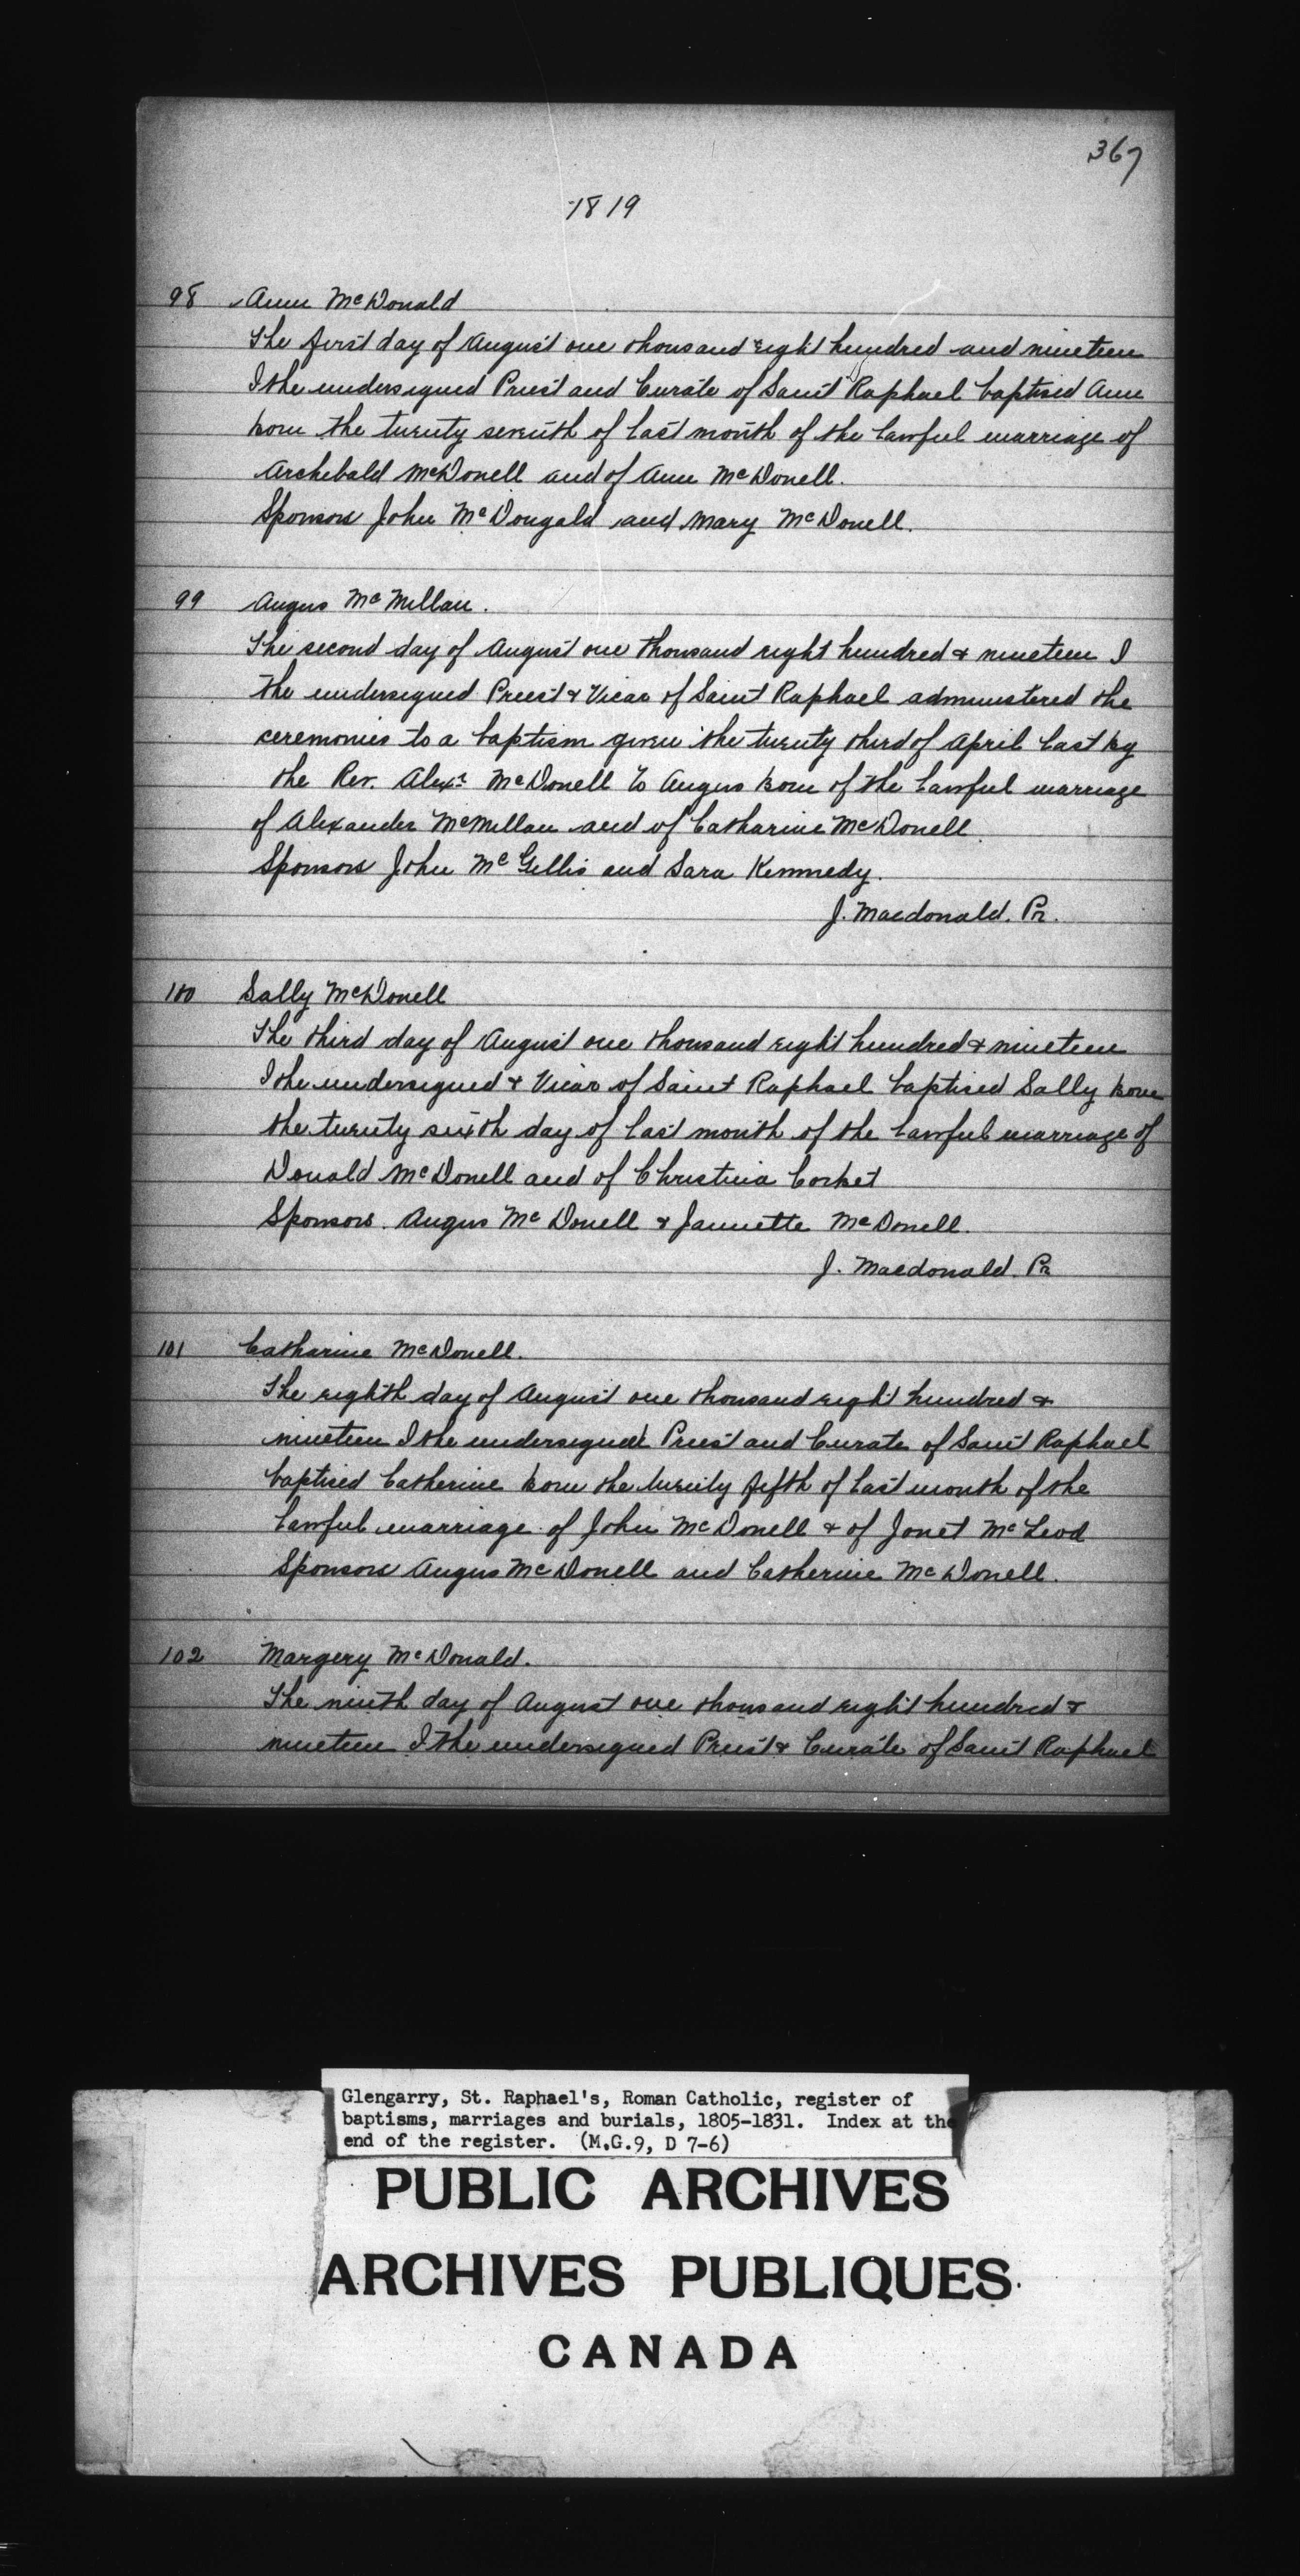 367
1819
98 Ann McDonald
The first day of August one thousand eight hundred and nineteen
I the undersigned Priest and Curate of Saint Raphael baptised Ann
born the twenty seventh of last month of the lawful marriage of
Archebald McDonell and of Ann McDonell.
Sponsors John McDougald and Mary McDonell.
99 Angus McMillan.
The second day of August one thousand eight hundred & nineteen I
the undersigned Priest & Vicar of Saint Raphael administered the
ceremonies to a baptism given the twenty third of April last by
the Rev. Alexr McDonell to Angus born of the lawful marriage
of Alexander McMillan and of Catharine McDonell
Sponsors John McGillis and Sara Kennedy.
J. Macdonald. Pr.
100 Sally McDonell
The third day of August one thousand eight hundred & nineteen
I the undersigned & Vicar of Saint Raphael baptised Sally born
the twenty sixth day of last month of the lawful marriage of
Donald McDonell and of Christina Corbet
Sponsors. Angus McDonell & Jannette McDonell.
J. Macdonald. Pr
101 Catharine McDonell.
The eighth day of August one thousand eight hundred &
nineteen I the undersigned Priest and Curate of Saint Raphael
baptised Catherine born the twenty fifth of last month of the
lawful marriage of John McDonell & of Jonet McLeod
Sponsors Angus McDonell and Catherine McDonell.
102 Margery McDonald.
The ninth day of August one thousand eight hundred &
nineteen I the undersigned Priest & Curate of Saint Raphael
Glengarry, St. Raphael's, Roman Catholic, register of
baptisms, marriages and burials, 1805-1831. Index at the
end of the register. (M.G.9, D 7-6)
PUBLIC ARCHIVES
ARCHIVES PUBLIQUES
CANADA